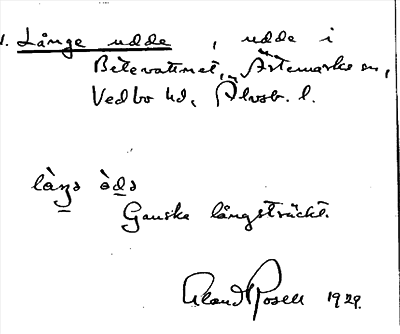 1. Långe udde, udde i
Betevattnet, Ärtemarks sn,
Vedbo hd, Älvsb. l.
làŋə ùdə
Ganska långsträckt.
Rosell 1929.